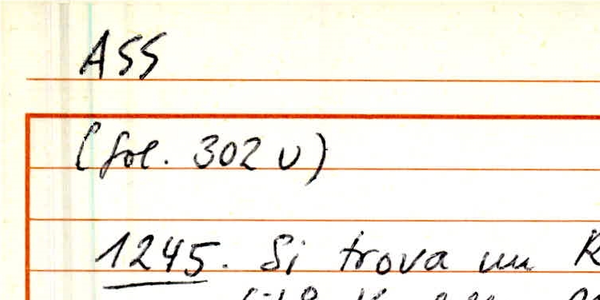 ASS
(fol. 302 v)
1245. Si trova un